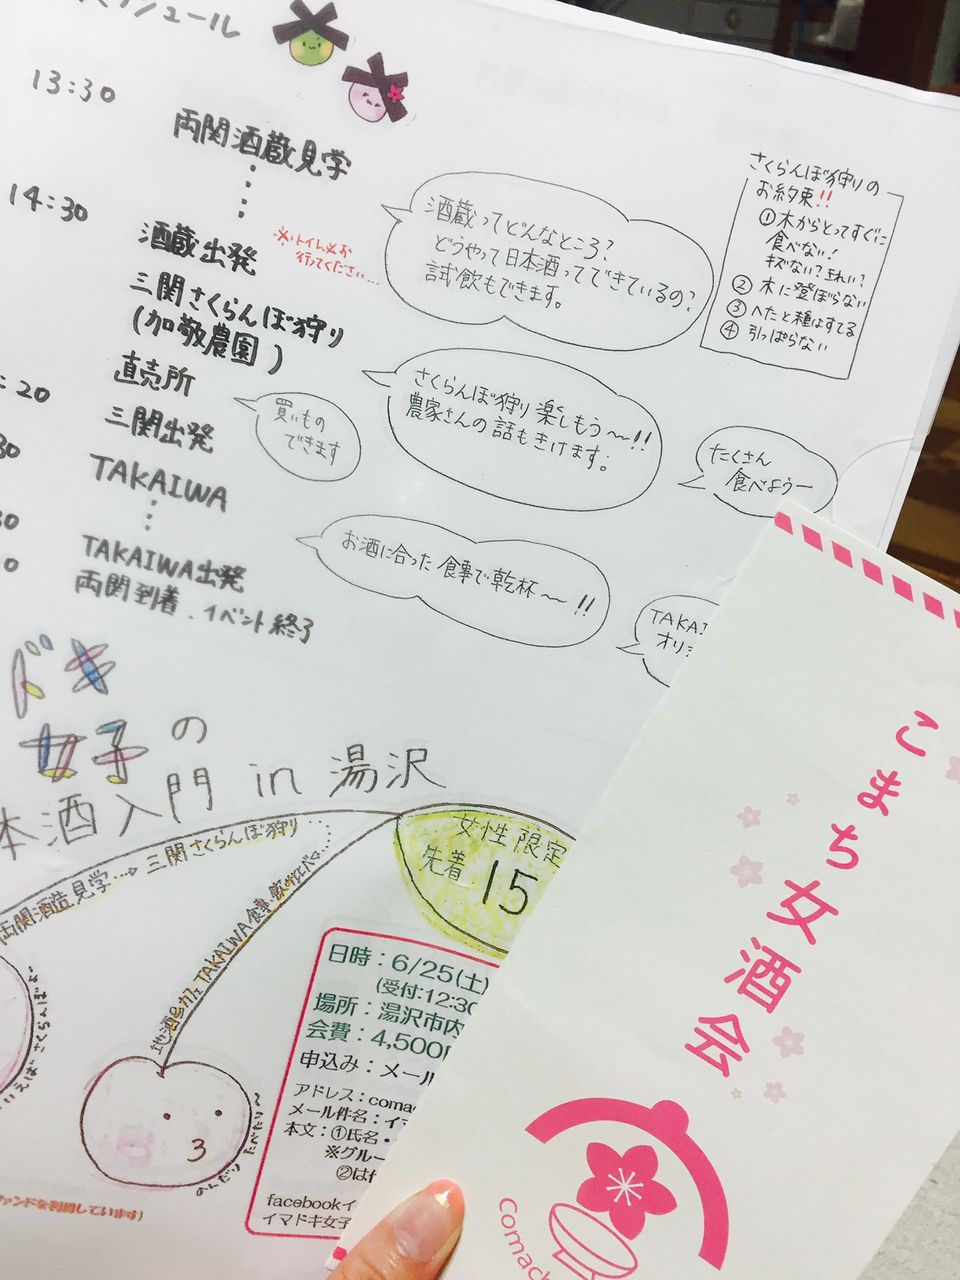 スケジュール
13:30
両関酒蔵見学
14:30
酒蔵出発
※トイレ必お
行ってください…
三関さくらんぼ狩り
(加敬農園)
直売所
:20
三関出発
30
TAKAIWA
30
TAKAIWA出発
0
両関到着.イベント終了
酒蔵ってどんなところ?
どうやって日本酒ってできているの?
試飲もできます。
さくらんぼ狩りの
お約束!!
①木からとってすぐに
食べない!
キズない?きれい?
②木に登ぼらない
③へたと種はすてる
④引っぱらない
さくらんぼ狩り楽しもう〜!!
農家さんの話もきけます。
買いもの
できます
たくさん
食べようー
お酒に合った食事で乾杯〜!!
TAKAI
オリ
ドキ
女子の
本酒入門 in 湯沢
両関酒造見学…→三関さくらんぼ狩り
地酒&カフェTAKAIWA食事・飲み比べ
女性限定
先着15
いえばさくらんぼよ
3
のんだり たべたり〜
日時:6/25(土)
(受付:12:30
場所:湯沢市内
会費:4,500
申込み:メール
アドレス:coma
メール件名:イマ
本文:①氏名・
※グルー
②は
facebookイ
イマドキ女子
ァンドを利用しています)
こまち女酒会
Comach